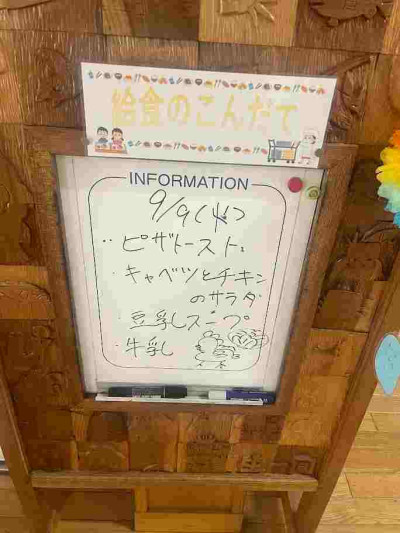 給食のこんだて
INFORMATION
9/9(火)
・ピザトースト
・キャベツとチキン
のサラダ
・豆乳スープ
・牛乳